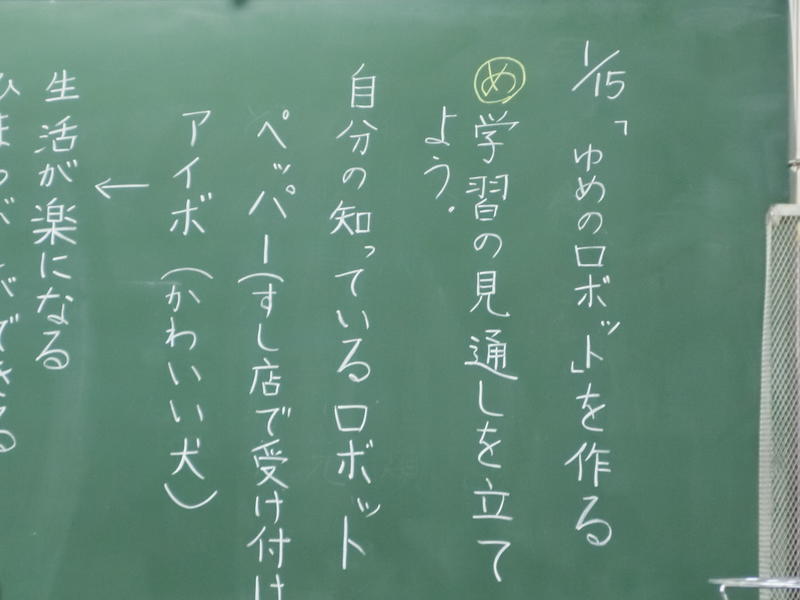 1/15「ゆめのロボット」を作る
め 学習の見通しを立て
よう。
自分の知っているロボット
ペッパー(すし店で受け付け
アイボ (かわいい犬)
←
生活が楽になる